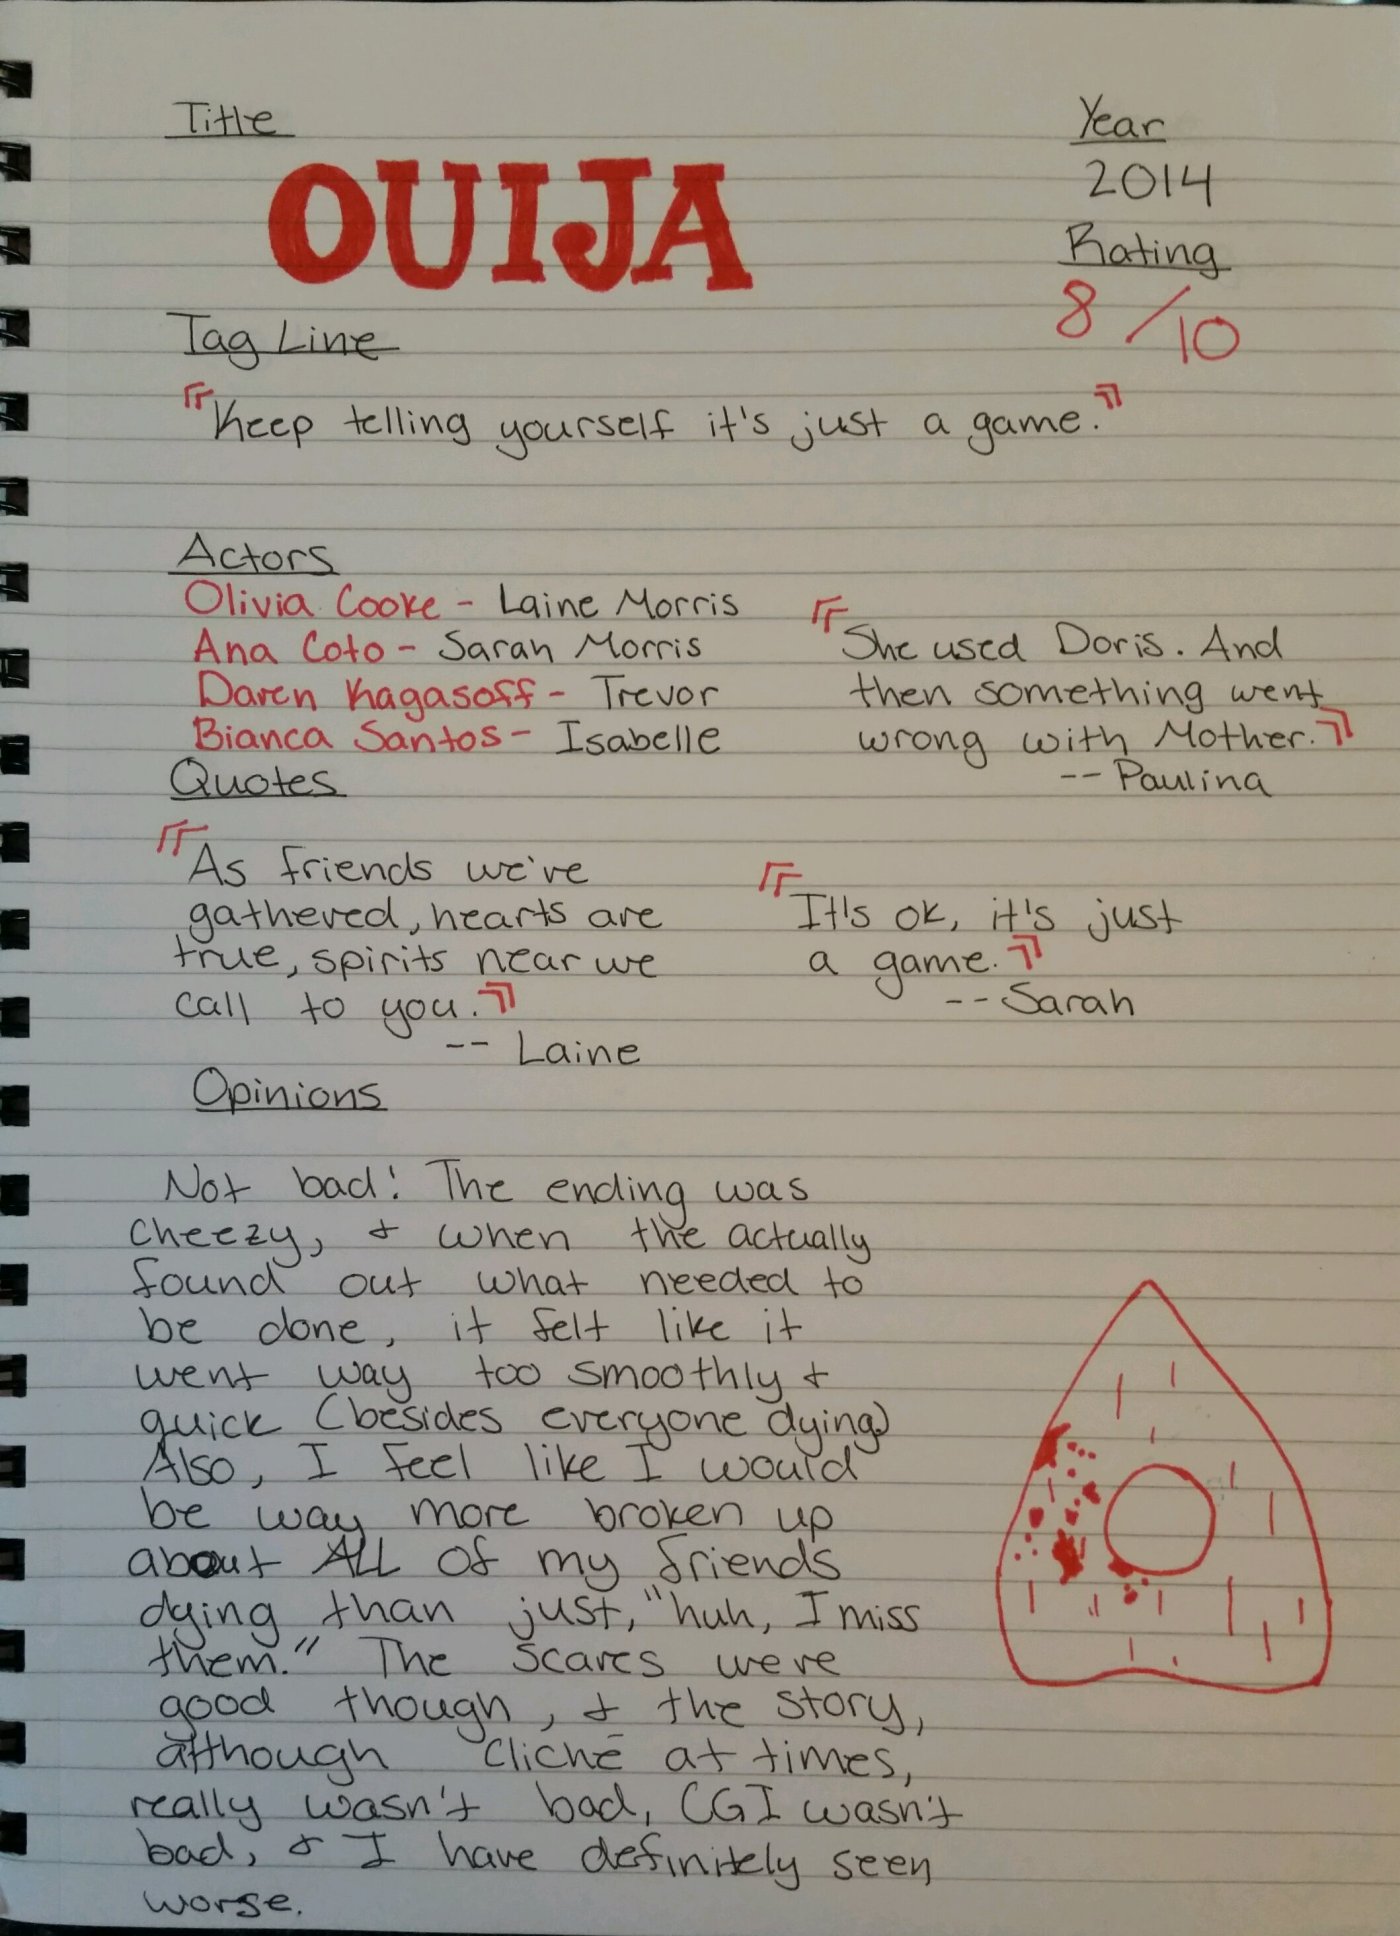 Title
OUIJA
Year
2014
Rating
8/10
Tag Line
"Keep telling yourself it's just a game."
Actors
Olivia Cooke - Laine Morris
Ana Coto - Sarah Morris
Daren Kagasoff - Trevor
Bianca Santos - Isabelle
"She used Doris. And
then something went
wrong with Mother."
-- Paulina
Quotes
"As friends we've
gathered, hearts are
true, spirits near we
call to you."
-- Laine
"It's ok, it's just
a game."
-- Sarah
Opinions
Not bad! The ending was
cheezy, & when the actually
found out what needed to
be done, it felt like it
went way too smoothly &
quick (besides everyone dying)
Also, I feel like I would
be way more broken up
about ALL of my friends
dying than just, "huh, I miss
them." The scares were
good though, & the story,
although cliché at times,
really wasn't bad, CGI wasn't
bad, & I have definitely seen
worse.